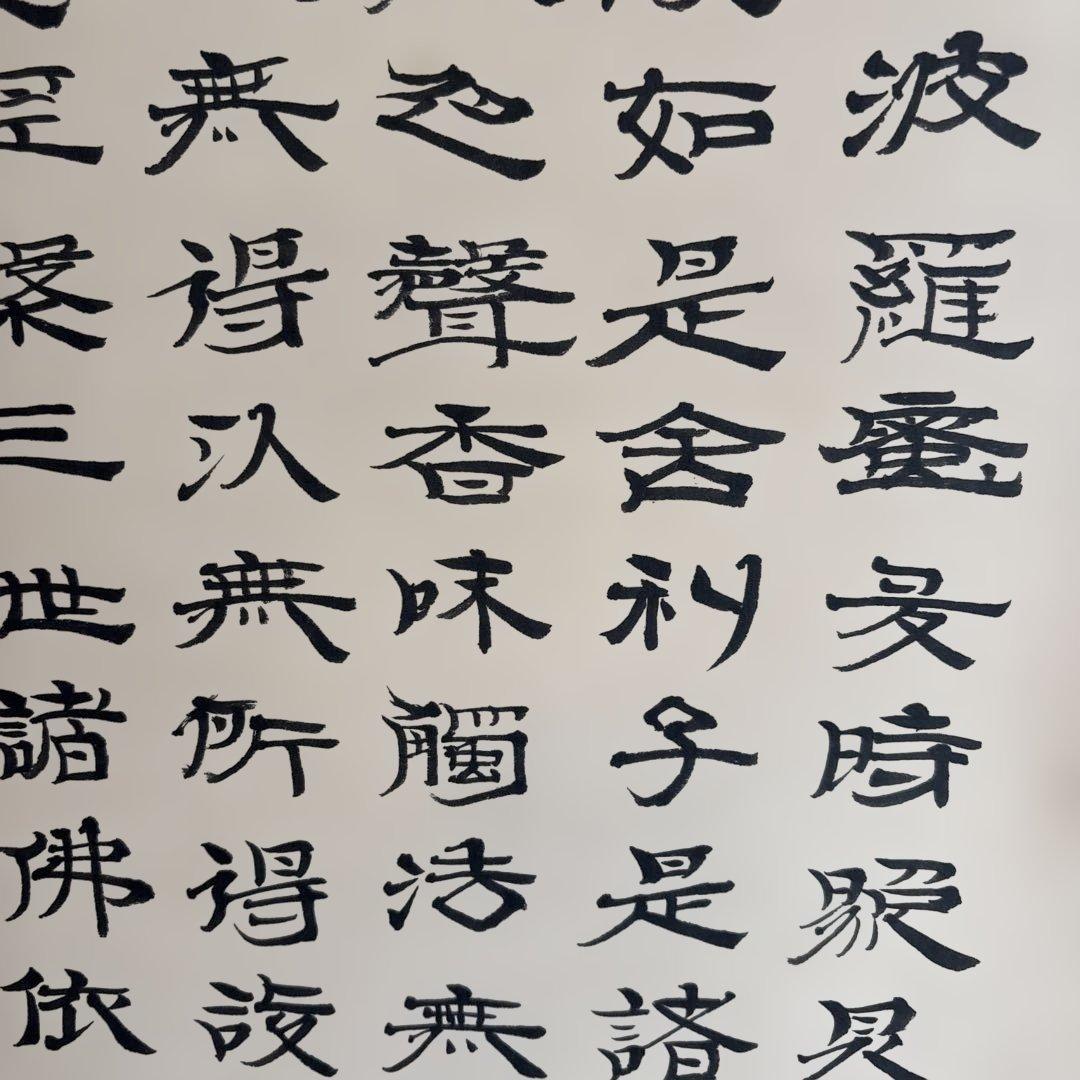 波羅蜜多時照見
如是舍利子是諸
色聲香味觸法無
無得以無所得故
涅槃三世諸佛依